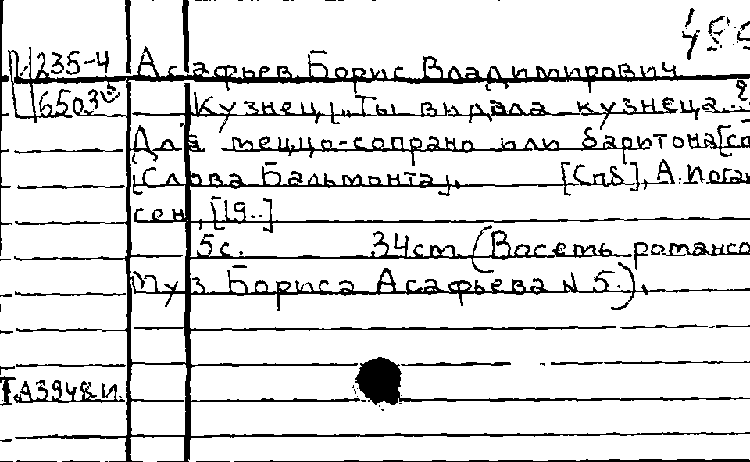 235-4 Асафьев Борис Владимирович
6503
Кузнец, „Ты видала кузнеца...
Для меццо-сопрано или баритона [со
[Слова Бальмонта]. [Спб], А. Иоган
сен, [19..]
5с. 34ст (Восемь романсо
Муз. Бориса Асафьева N 5.).
Т.А3948И.